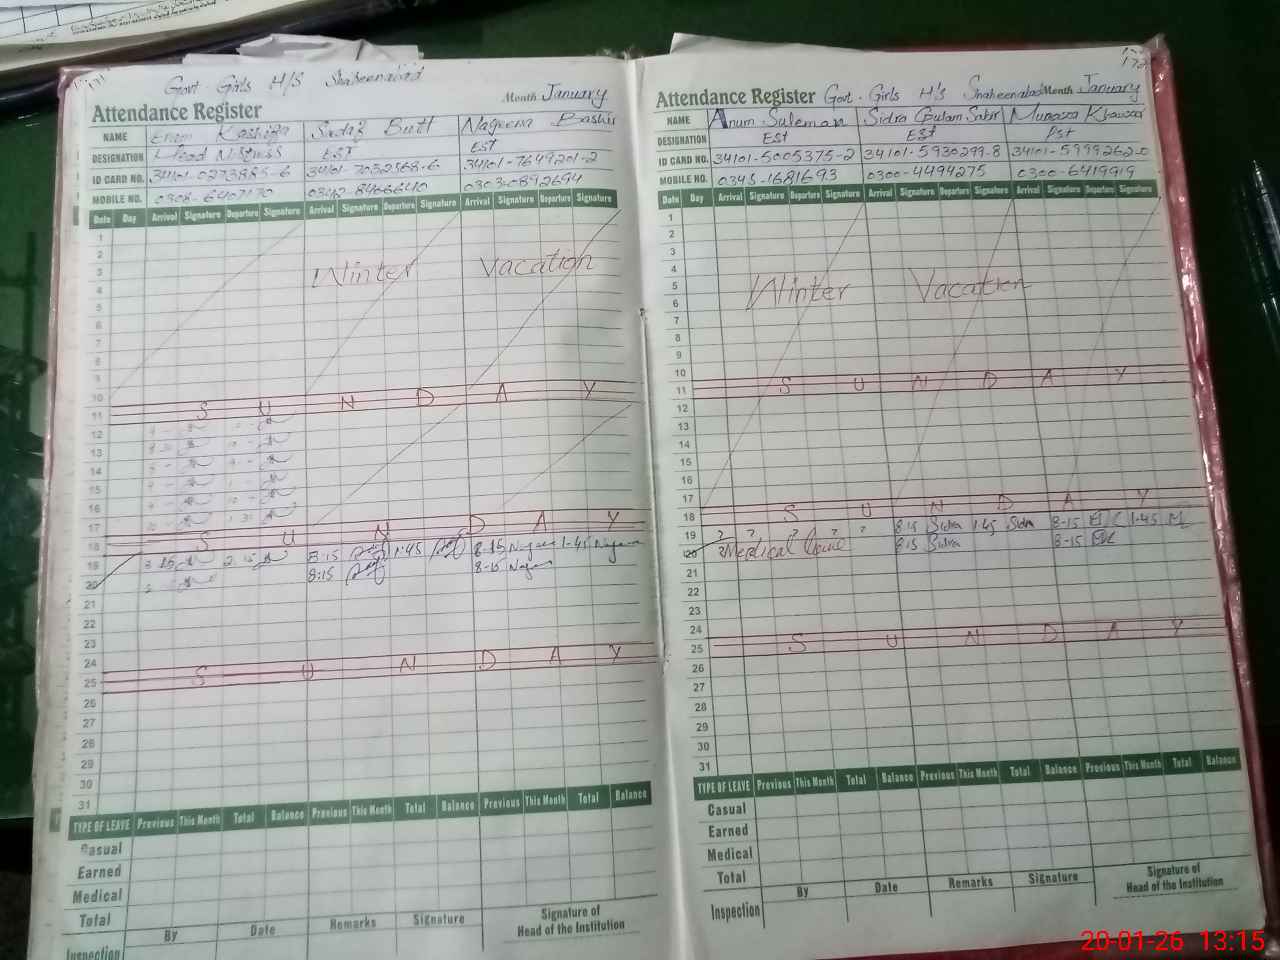 Govt Girls H/S Shaheenabad
Attendance Register
Month January
NAME Erum Kashifa Sadaf Butt Nageena Bashir
DESIGNATION Head Mistress EST EST
ID CARD NO. 34101-0273885-6 34101-7032568-6 34101-7649201-2
MOBILE NO. 0308-6407170 0342-8406640 0303-0892694
Date Day Arrival Signature Departure Signature Arrival Signature Departure Signature Arrival Signature Departure Signature
1
2
3
4 Winter Vacation
5
6
7
8
9
10
11 S U N D A Y
12
13
14
15
16
17
18 S U N D A Y
19 8:15 1:45 8-15 1-45
20 8:15 8-15
21
22
23
24
25 S U N D A Y
26
27
28
29
30
31
TYPE OF LEAVE Previous This Month Total Balance Previous This Month Total Balance Previous This Month Total Balance
Casual
Earned
Medical
Total
Inspection By Date Remarks Signature Signature of
Head of the Institution
172
Attendance Register Govt. Girls H/S Shaheenabad Month January
NAME Anum Suleman Sidra Gulam Sabir Munaza Khawar
DESIGNATION Est Est Pst
ID CARD NO. 34101-5005375-2 34101-5930299-8 34101-5999262-0
MOBILE NO. 0345-1681693 0300-4494275 0300-6419919
Date Day Arrival Signature Departure Signature Arrival Signature Departure Signature Arrival Signature Departure Signature
1
2
3
4
5 Winter Vacation
6
7
8
9
10
11 S U N D A Y
12
13
14
15
16
17
18 S U N D A Y
19 ? ? ? ? ? 8:15 Sidra 1:45 Sidra 8-15 1-45
20 Medical leave 8:15 Sidra 8-15
21
22
23
24
25 S U N D A Y
26
27
28
29
30
31
TYPE OF LEAVE Previous This Month Total Balance Previous This Month Total Balance Previous This Month Total Balance
Casual
Earned
Medical
Total
Inspection By Date Remarks Signature Signature of
Head of the Institution
20-01-26 13:15